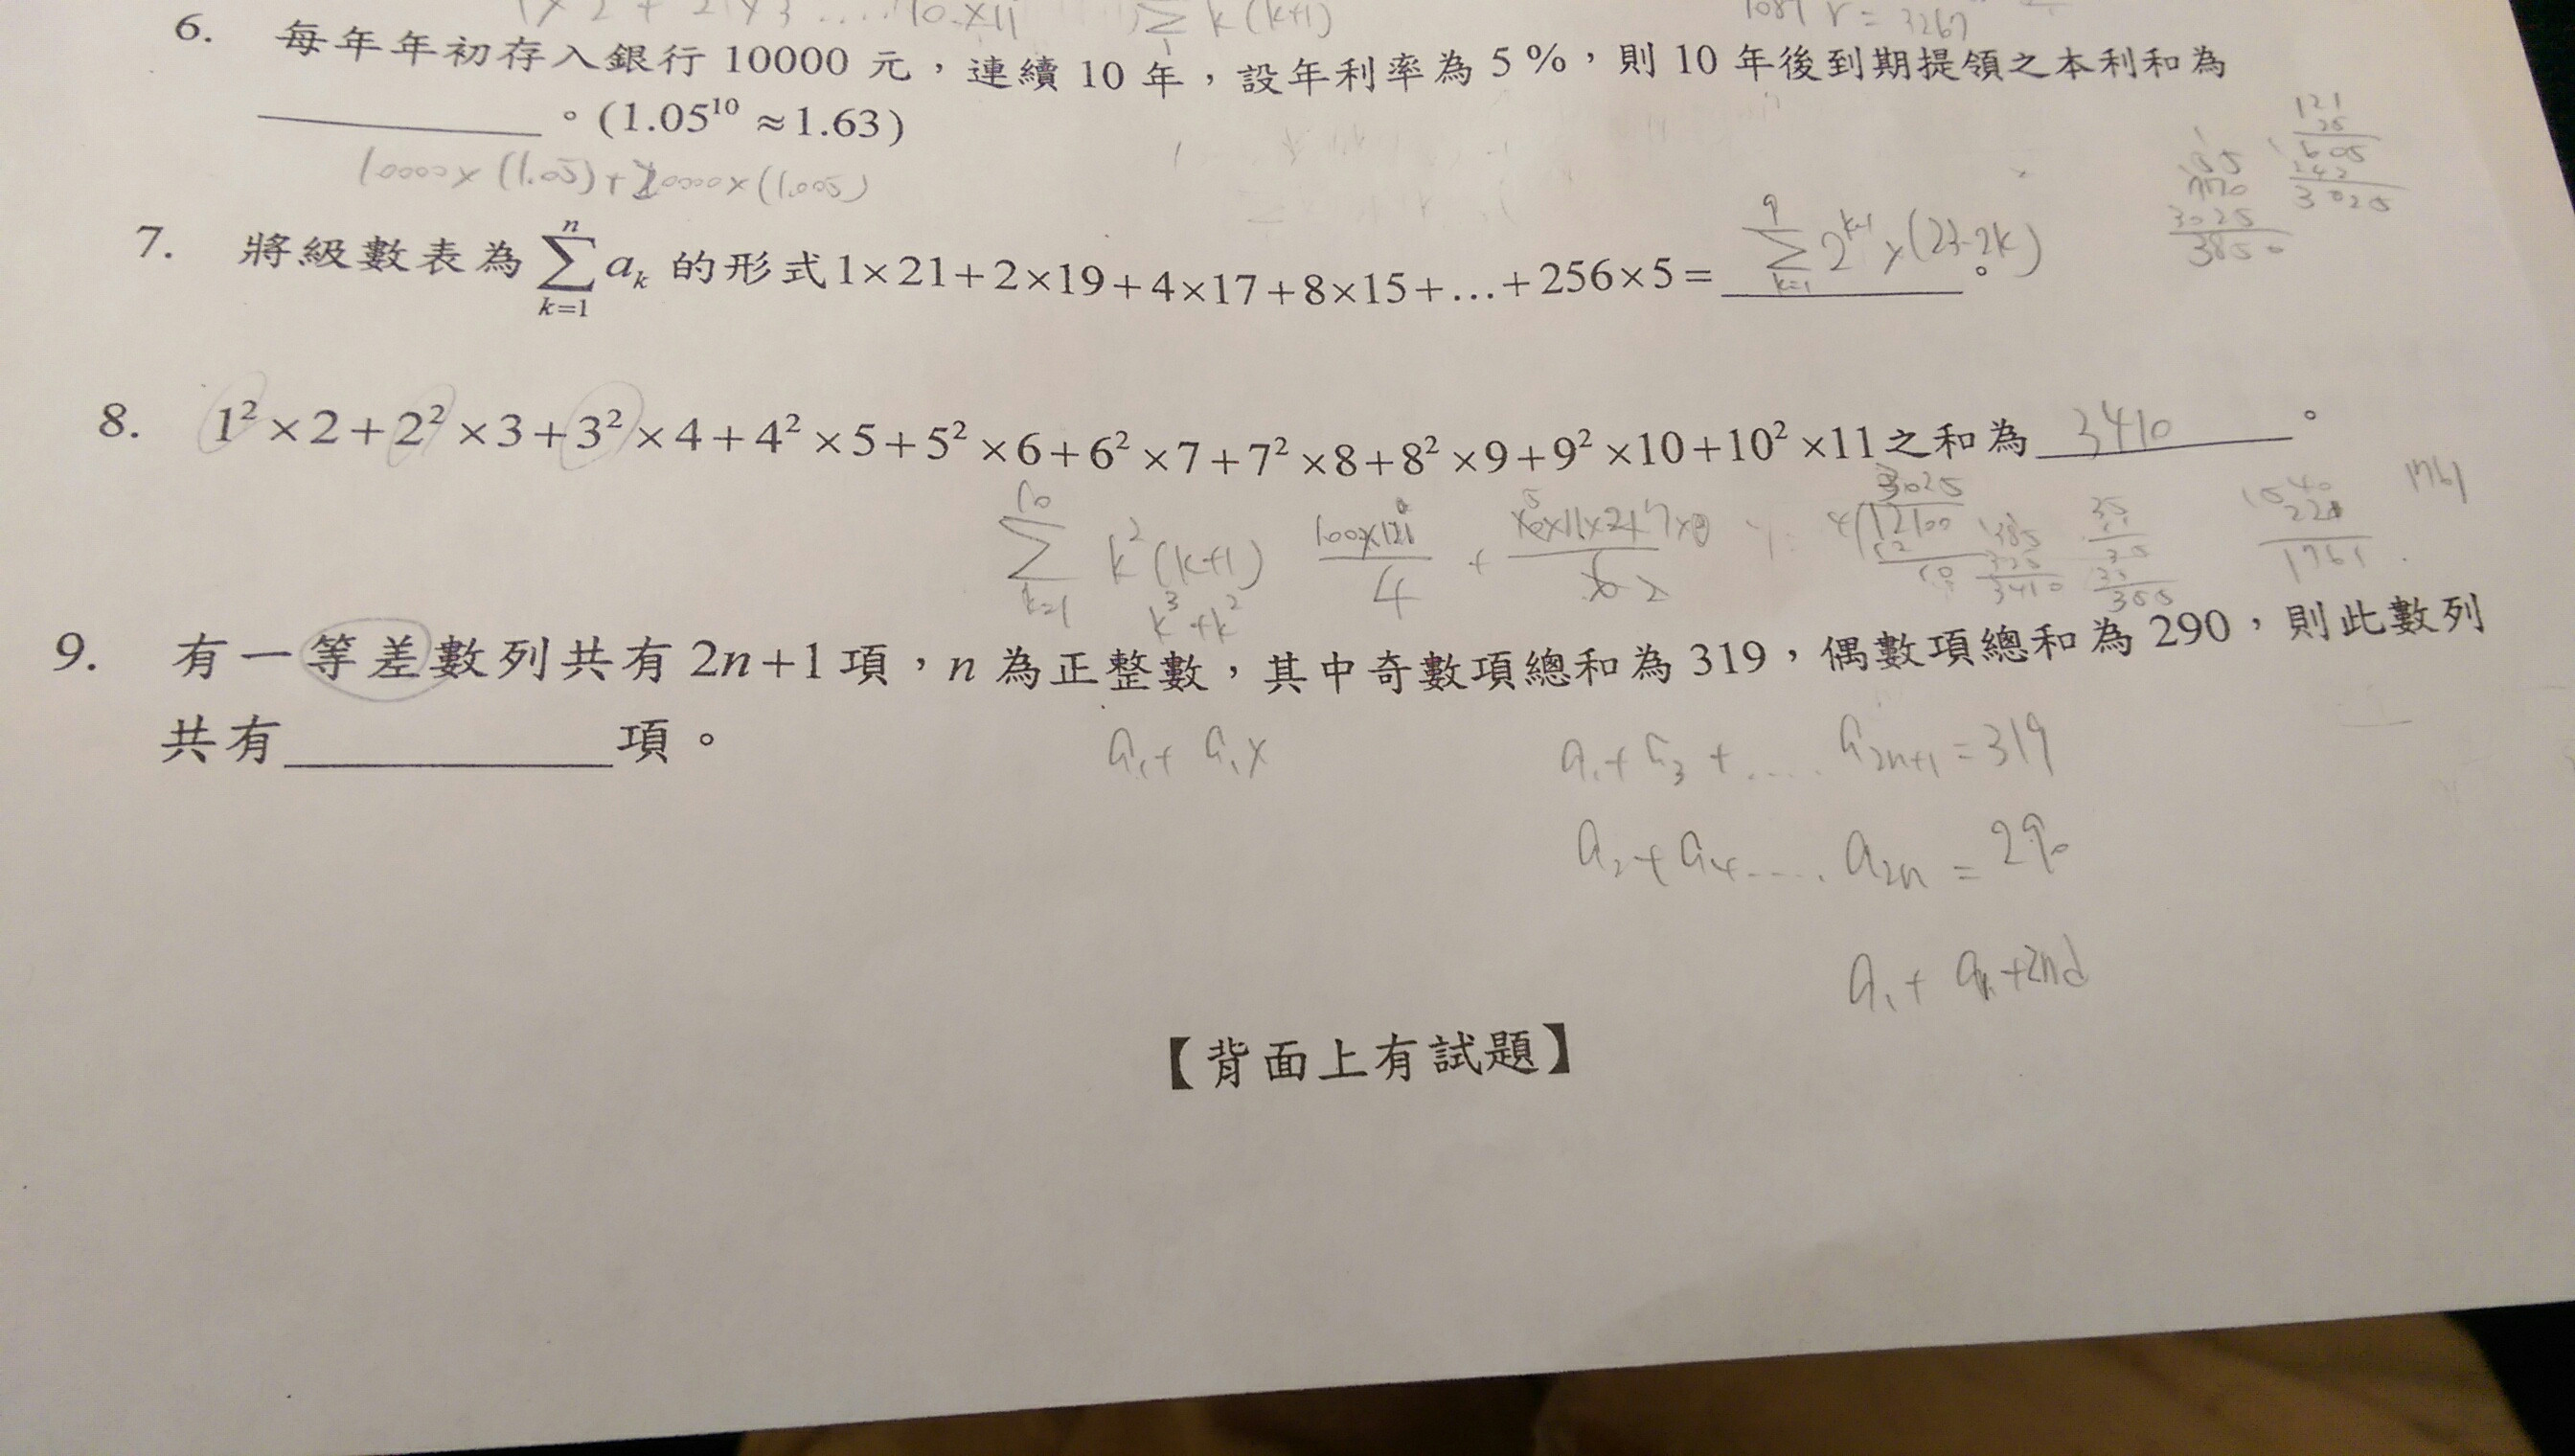 1×2+2×3.....10×11 Σ k(k+1) 1089 r = 3267
6. 每年年初存入銀行 10000 元,連續 10 年,設年利率為 5%,則 10 年後到期提領之本利和為
______。(1.05¹⁰ ≈1.63)
10000×(1.05)+10000×(1.005)
121
25
605
242
3025
3025
3850
7. 將級數表為 \sum_{k=1}^{n} a_k 的形式1×21+2×19+4×17+8×15+…+256×5= \sum_{k=1}^{9} 2^{k-1}×(23-2k)。
8. 1²×2+2²×3+3²×4+4²×5+5²×6+6²×7+7²×8+8²×9+9²×10+10²×11之和為 3410 。
\sum_{k=1}^{10} k²(k+1) \frac{100×121}{4} +
k³+k²
3025
4)12100
12
10
385
3410
1540
221
1761
1761
9. 有一等差數列共有 2n+1 項,n 為正整數,其中奇數項總和為 319,偶數項總和為 290,則此數列
共有______項。
a₁+ a₁x
a₁+a₃+.... a₂ₙ₊₁=319
a₂+a₄..... a₂ₙ = 290
a₁+ aₙ+2nd
【背面上有試題】